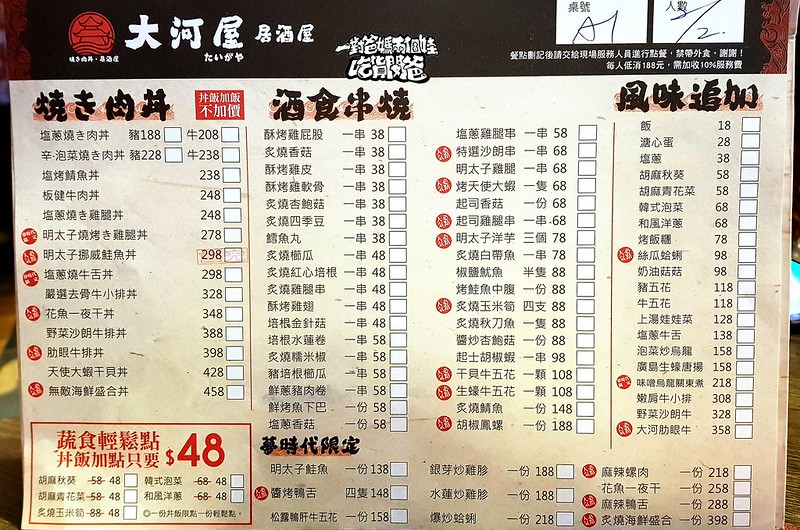 大河屋 居酒屋
たいがや
燒き肉丼・居酒屋
一對爸媽兩個娃
吃貨跟爸
桌號
A1
人數
3/2
餐點劃記後請交給現場服務人員進行點餐，禁帶外食，謝謝！
每人低消188元，需加收10%服務費
燒き肉丼
丼飯加飯
不加價
塩蔥燒き肉丼 豬188 牛208
辛·泡菜燒き肉丼 豬228 牛238
塩烤鯖魚丼 238
板健牛肉丼 248
塩蔥燒き雞腿丼 248
明太子燒烤き雞腿丼 278
明太子挪威鮭魚丼 298
塩蔥燒牛舌丼 298
嚴選去骨牛小排丼 328
花魚一夜干丼 348
野菜沙朗牛肉丼 388
肋眼牛排丼 398
天使大蝦干貝丼 428
無敵海鮮盛合丼 458
蔬食輕鬆點
丼飯加點只要 $48
胡麻秋葵 58 48 韓式泡菜 68 48
胡麻青花菜 58 48 和風洋蔥 68 48
炙燒玉米筍 88 48 ◎一份丼飯限點一份輕鬆點。
酒食串燒
酥烤雞屁股 一串 38
炙燒香菇 一串 38
酥烤雞皮 一串 38
酥烤雞軟骨 一串 38
炙燒杏鮑菇 一串 38
炙燒四季豆 一串 38
鱈魚丸 一串 38
炙燒櫛瓜 一串 48
炙燒紅心培根 一串 48
炙燒雞腿串 一串 48
酥烤雞翅 一串 48
培根金針菇 一串 48
培根水蓮卷 一串 48
炙燒糯米椒 一串 58
豬培根櫛瓜 一串 58
鮮蔥豬肉卷 一串 58
鮮烤魚下巴 一份 58
塩蔥香菇 一份 58
塩蔥雞腿串 一串 58
特選沙朗串 一串 68
明太子雞腿 一串 68
烤天使大蝦 一隻 68
起司香菇 一份 68
起司雞腿串 一串 68
明太子洋芋 三個 78
炙燒白帶魚 一串 78
椒鹽魷魚 半隻 88
烤鮭魚中腹 一份 88
炙燒玉米筍 四支 88
炙燒秋刀魚 一隻 88
醬炒杏鮑菇 一份 88
起士胡椒蝦 一串 98
干貝牛五花 一顆 108
生蠔牛五花 一顆 108
炙燒鯖魚 一份 148
胡椒鳳螺 一份 188
風味追加
飯 18
溏心蛋 28
塩蔥 38
胡麻秋葵 58
胡麻青花菜 58
韓式泡菜 68
和風洋蔥 68
烤飯糰 78
絲瓜蛤蜊 98
奶油菇菇 98
豬五花 118
牛五花 118
上湯娃娃菜 128
塩蔥牛舌 138
泡菜炒烏龍 158
廣島生蠔唐揚 158
味噌烏龍關東煮 218
嫩肩牛小排 308
野菜沙朗牛 328
大河肋眼牛 358
夢時代限定
明太子鮭魚 一份 138
醬烤鴨舌 四隻 148
松露鴨肝牛五花 一份 158
銀芽炒雞胗 一份 188
水蓮炒雞胗 一份 188
爆炒蛤蜊 一份 218
麻辣螺肉 一份 218
花魚一夜干 一份 258
麻辣鴨舌 一份 288
炙燒海鮮盛合 一份 328